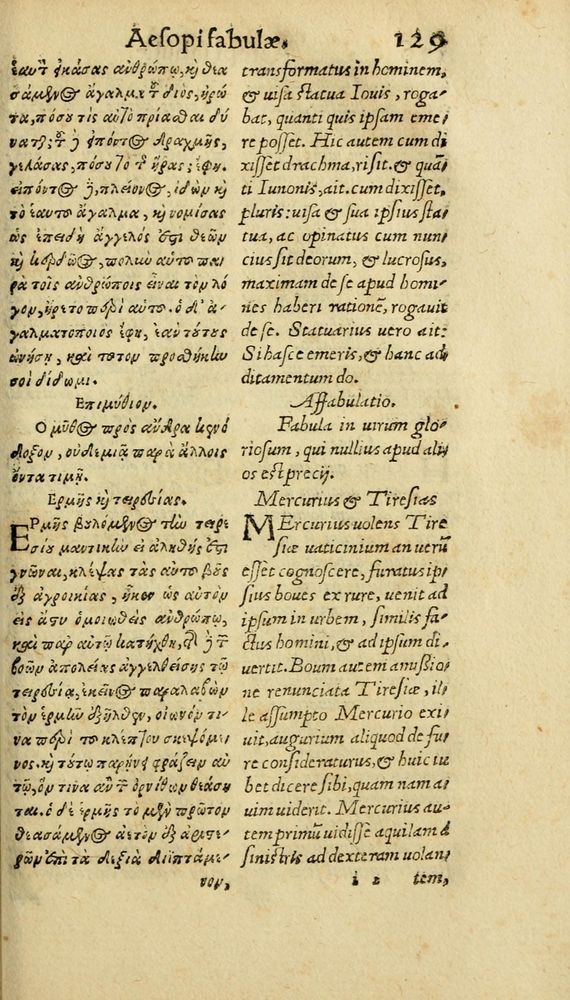 Aesopi fabulæ. 129
ἑαυτὸν εἰκάσας ἀνθρώπῳ, καὶ θεα
σάμενος ἄγαλμα τοῦ διὸς, ἠρώ
τα, πόσου τὶς αὐτὸ πρίασθαι δύ
ναται; τοῦ δὲ εἰπόντος δραχμῆς,
γελάσας, πόσου τὸ τῆς ἥρας; ἔφη.
εἰπόντος δὲ, πλείονος, ἰδὼν καὶ
τὸ ἑαυτοῦ ἄγαλμα, καὶ νομίσας
ὡς ἐπειδὴ ἄγγελός ἐστι θεῶν
καὶ κερδῶος, πολὺν αὐτοῦ πα
ρὰ τοῖς ἀνθρώποις εἶναι τὸν λό
γον, ἤρετο περὶ αὐτοῦ. ὁ δ' ἀ
γαλματοποιὸς ἔφη, ἐὰν τούτους
ὠνήσῃ, καὶ τοῦτον προσθήκην
σοι δίδωμι.
Επιμύθιον.
Ο μῦθος πρὸς ἄνδρα κενό
δοξον, οὐδεμιᾷ παρὰ ἄλλοις
ὄντα τιμῇ.
Ερμῆς καὶ τειρεσίας.
ΕΡμῆς βουλόμενος τὴν τειρε
σίου μαντικὴν εἰ ἀληθής ἐστι
γνῶναι, κλέψας τὰς αὐτοῦ βοῦς
ἐξ ἀγροικίας, ἧκεν ὡς αὐτὸν
εἰς ἄστυ ὁμοιωθεὶς ἀνθρώπῳ,
καὶ παρ' αὐτῷ κατήχθη, δὲ τῶν
βοῶν ἀπολείας ἀγγελθείσης τῷ
τειρεσίᾳ, ἐκεῖνος παραλαβὼν
τὸν ἑρμῆν ἐξῆλθεν, οἰωνόν τι
να περὶ τοῦ κλέπτου σκεψόμε
νος. καὶ τούτῳ παρῄνει φράζειν αὐ
τῷ, ὅντινα ἂν τῶν ὀρνίθων θεάση
ται. ὁ δὲ ἑρμῆς τὸ μὲν πρῶτον
θεασάμενος ἀετὸν ἐξ ἀριστε
ρῶν ἐπὶ τὰ δεξιὰ διϊπτάμε
νον,
transformatus in hominem,
& uisa statua Iouis, roga
bat, quanti quis ipsam eme
re posset. Hic autem cum di
xisset drachma, risit. & quã
ti Iunonis, ait. cum dixisset,
pluris: uisa & sua ipsius sta
tua, ac opinatus cum nun
cius sit deorum, & lucrosus,
maximam de se apud homi
nes haberi rationẽ, rogauit
de se. Statuarius uero ait:
Si hasce emeris, & hanc ad
ditamentum do.
Affabulatio.
Fabula in uirum glo
riosum, qui nullius apud ali
os est precij.
Mercurius & Tiresias
MErcurius uolens Tire
siæ uaticinium an uerũ
esset cognoscere, furatus ip
sius boues ex rure, uenit ad
ipsum in urbem, similis fa
ctus homini, & ad ipsum di
uertit. Boum autem amissio
ne renunciata Tiresiæ, il
le assumpto Mercurio exi
uit, augurium aliquod de fu
re consideraturus, & huic iu
bet dicere sibi, quam nam a
uim uiderit. Mercurius au
tem primũ uidisse aquilam à
sinistris ad dexteram uolan
i 2 tem,